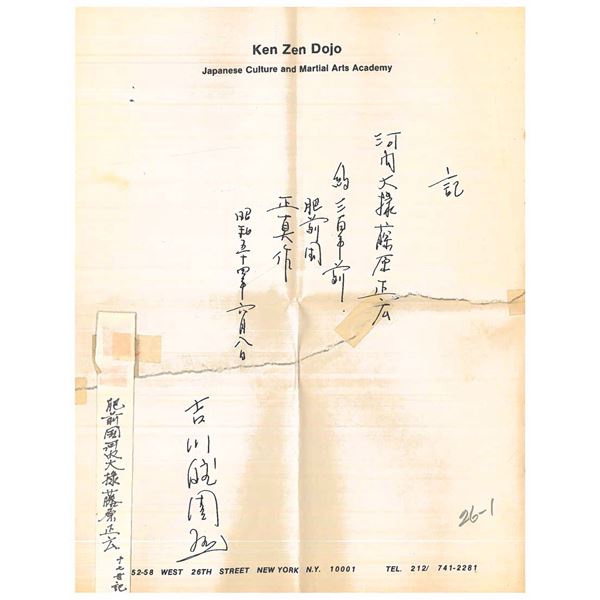 Ken Zen Dojo
Japanese Culture and Martial Arts Academy
記
河内大掾藤原正広
約三百年前.
肥前国
正真作
昭和五十四年六月八日
吉川
肥前國河内大掾藤原正広
十七世記
26-1
52-58 WEST 26TH STREET NEW YORK N.Y. 10001
TEL. 212/ 741-2281